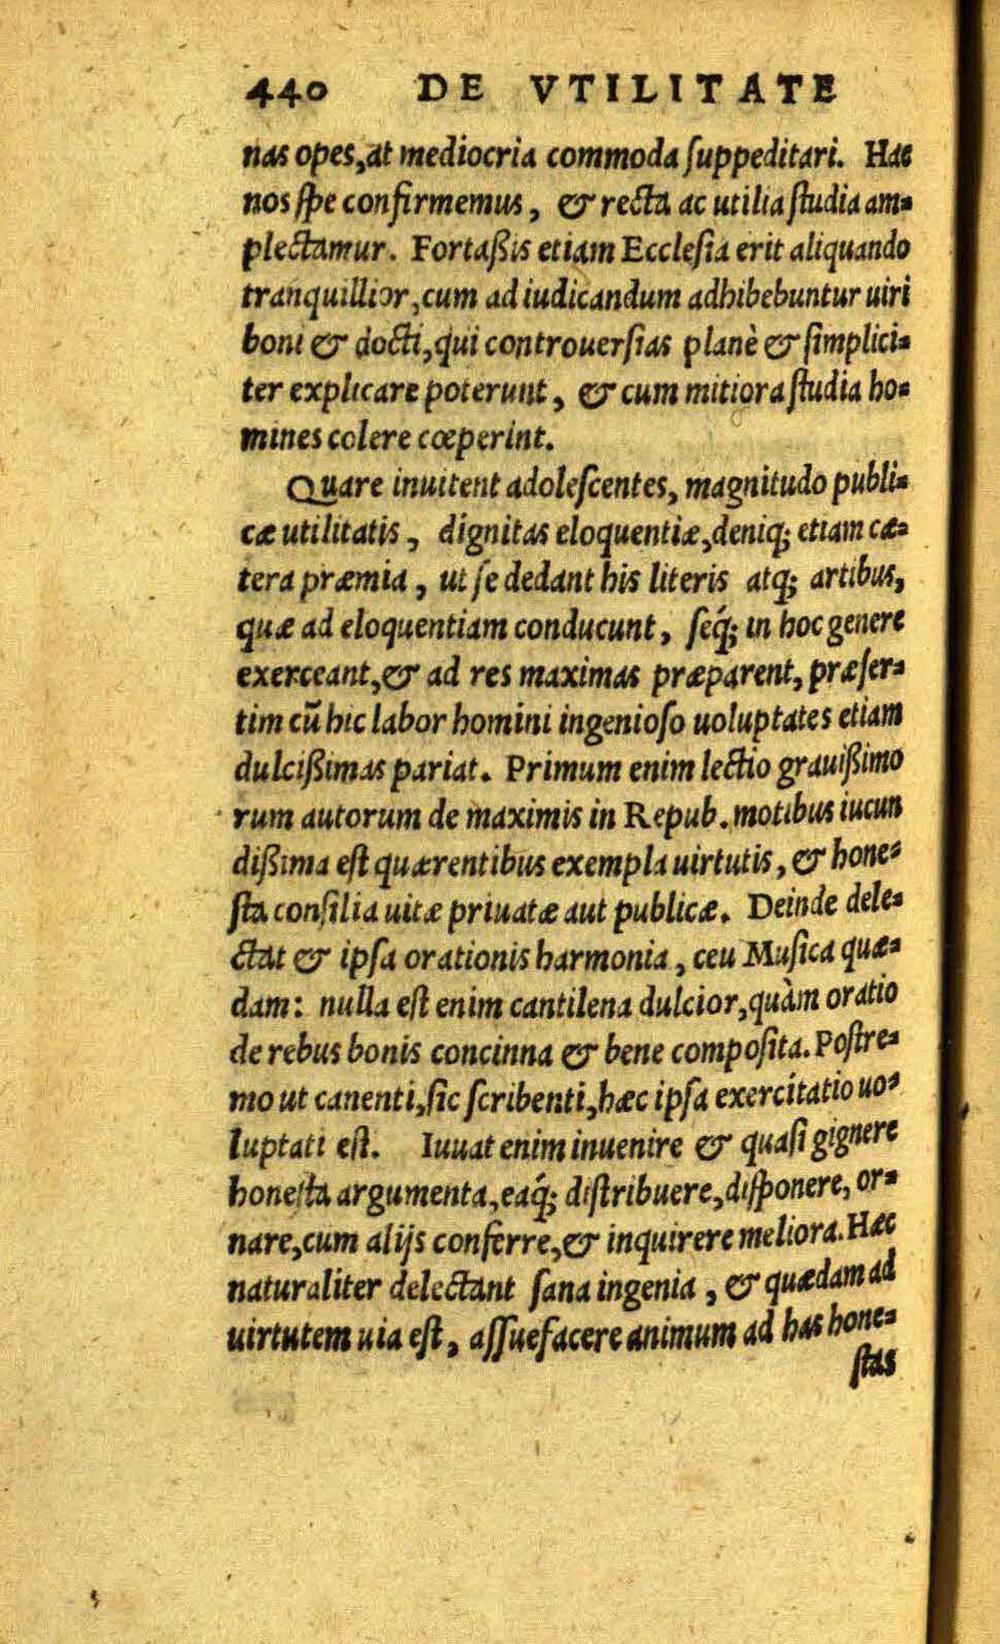 440 DE VTILITATE
nas opes, at mediocria commoda ſuppeditari. Hac
nos ſpe confirmemus, & recta ac utilia ſtudia am=
plectamur. Fortaßis etiam Eccleſia erit aliquando
tranquillior, cum ad iudicandum adhibebuntur uiri
boni & docti, qui controuerſias planè & ſimplici=
ter explicare poterunt, & cum mitiora ſtudia ho=
mines colere cœperint.
Quare inuitent adoleſcentes, magnitudo publi=
cæ utilitatis, dignitas eloquentiæ, deniq; etiam cæ=
tera præmia, ut ſe dedant his literis atq; artibus,
quæ ad eloquentiam conducunt, ſeq́; in hoc genere
exerceant, & ad res maximas præparent, præſer=
tim cũ hic labor homini ingenioſo uoluptates etiam
dulcißimas pariat. Primum enim lectio grauißimo
rum autorum de maximis in Repub. motibus iucun
dißima eſt quærentibus exempla uirtutis, & hone=
ſta conſilia uitæ priuatæ aut publicæ. Deinde dele=
ctat & ipſa orationis harmonia, ceu Muſica quæ=
dam: nulla eſt enim cantilena dulcior, quàm oratio
de rebus bonis concinna & bene compoſita. Poſtre=
mo ut canenti, ſic ſcribenti, hæc ipſa exercitatio uo=
luptati eſt. Iuuat enim inuenire & quaſi gignere
honeſta argumenta, eaq́; diſtribuere, diſponere, or=
nare, cum alijs conferre, & inquirere meliora. Hæc
naturaliter delectant ſana ingenia, & quædam ad
uirtutem uia eſt, aſſuefacere animum ad has hone=
ſtas